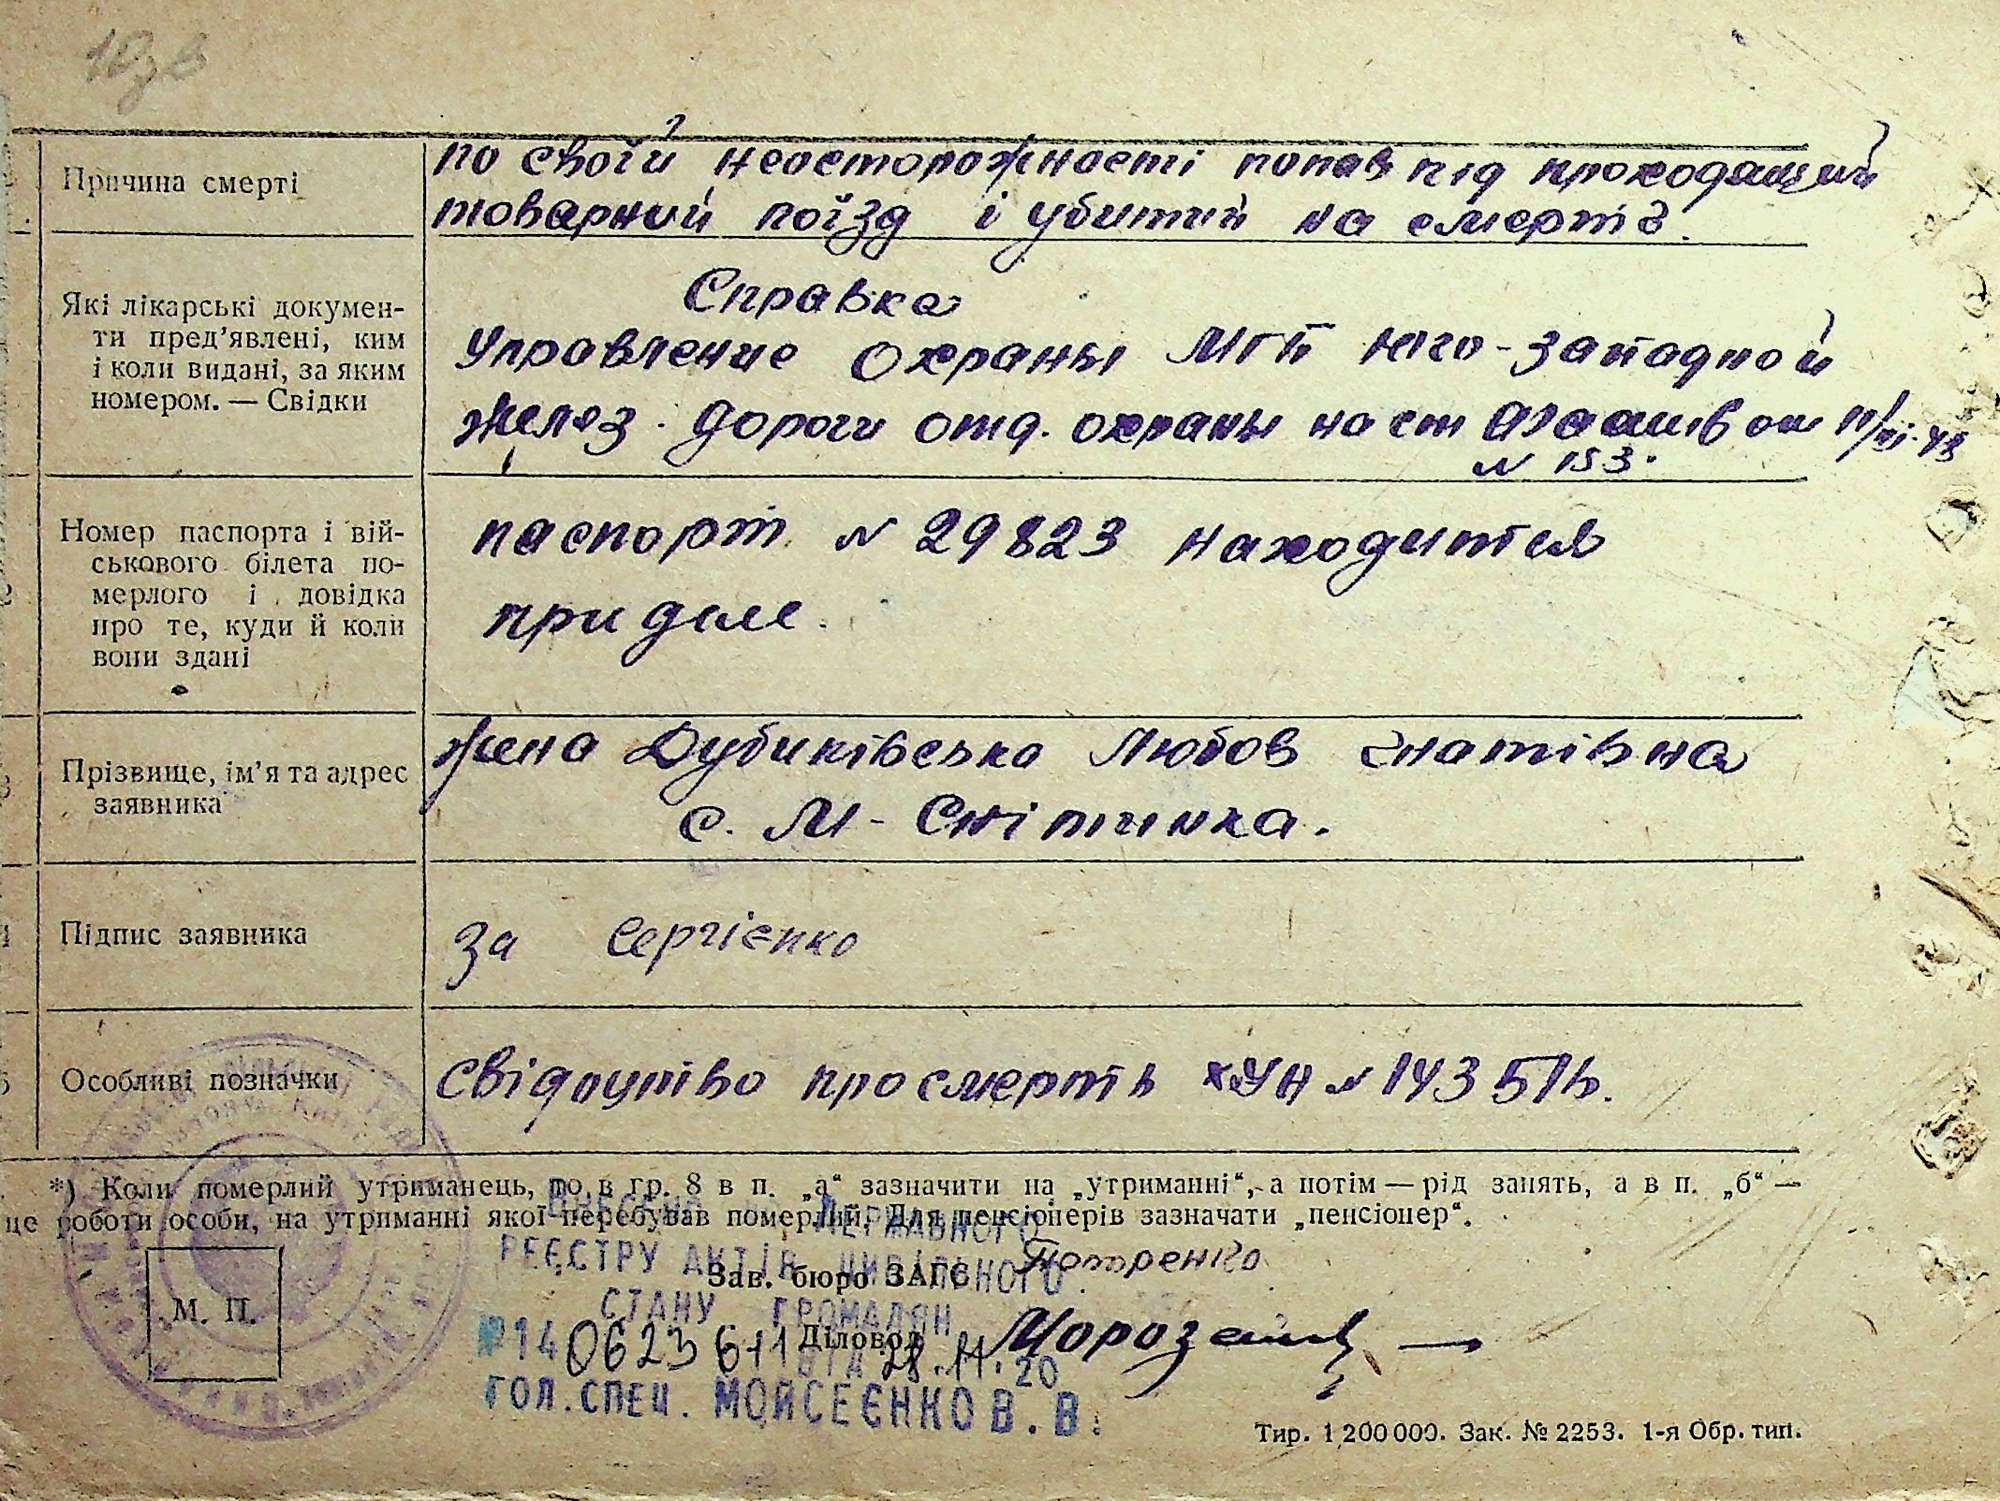 Причина смерті
по своїй неосторожності попав під проходящий
товарний поїзд і убитий на смерть.
Які лікарські докумен-
ти пред’явлені, ким
і коли видані, за яким
номером. — Свідки
Справка
Управление охраны МГБ Юго-Западной
желез. дороги отд. охраны на ст
N 153.
Номер паспорта і вій-
ськового білета по-
мерлого і довідка
про те, куди й коли
вони здані
паспорт N 29823 находится
при деле.
Прізвище, ім’я та адрес
заявника
жена Дубиківська Любов Гнатівна
с. М-Снітинка.
Підпис заявника
за Сергієнко
Особливі позначки
Свідоцтво про смерть N 143516.
*) Коли померлий утриманець, то в гр. 8 в п. „а“ зазначити на „утриманні“, а потім — рід занять, а в п. „б“ —
це роботи особи, на утриманні якої перебував померлий. Для пенсіонерів зазначати „пенсіонер“.
ДЕРЖАВНОГО
РЕЄСТРУ АКТІВ ЦИВІЛЬНОГО
Зав. бюро ЗАГС
СТАНУ ГРОМАДЯН
М. П.
Діловод
№140623611 від 28.11.20
ГОЛ.СПЕЦ. МОЙСЕЄНКО В.В.
Тир. 1 200 000. Зак. № 2253. 1-я Обр. тип.